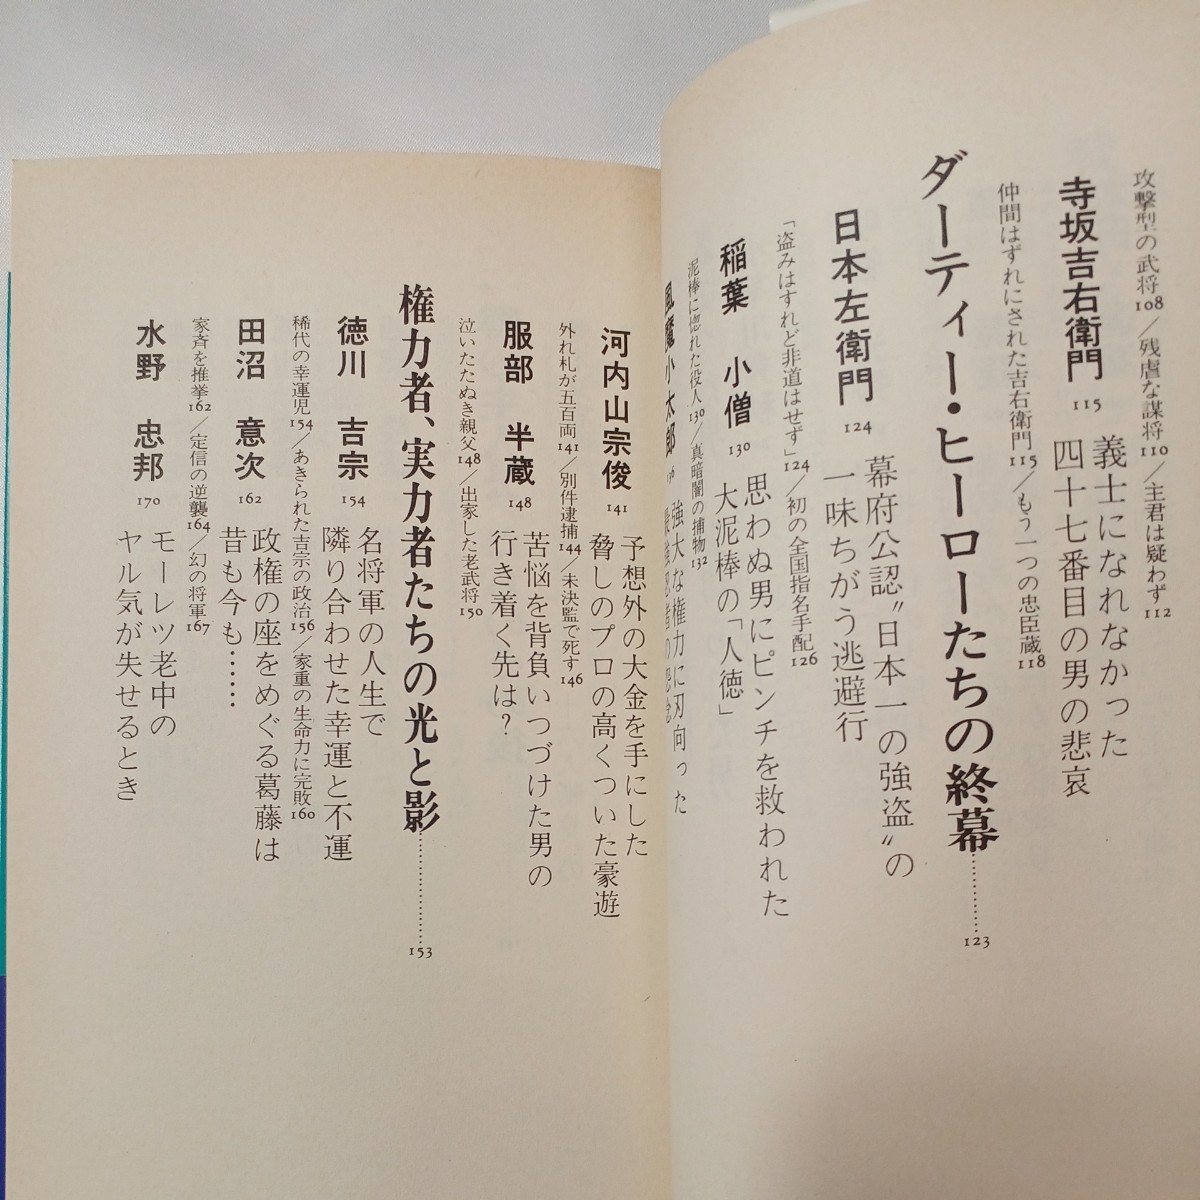 攻撃型の武将108／残虐な謀将110／主君は疑わず112
寺坂吉右衛門 115
義士になれなかった
四十七番目の男の悲哀
仲間はずれにされた吉右衛門115／もう一つの忠臣蔵118
ダーティー・ヒーローたちの終幕…………123
日本左衛門 124
幕府公認〝日本一の強盗〟の
一味ちがう逃避行
「盗みはすれど非道はせず」124／初の全国指名手配126
稲葉 小僧 130
思わぬ男にピンチを救われた
大泥棒の「人徳」
泥棒に惚れた役人130／真暗闇の捕物132
風魔小太郎 136
強大な権力に刃向った
河内山宗俊 141
予想外の大金を手にした
脅しのプロの高くついた豪遊
外れ札が五百両141／別件逮捕144／未決監で死す146
服部 半蔵 148
苦悩を背負いつづけた男の
行き着く先は？
泣いたたぬき親父148／出家した老武将150
権力者、実力者たちの光と影…………153
徳川 吉宗 154
名将軍の人生で
隣り合わせた幸運と不運
稀代の幸運児154／あきられた吉宗の政治156／家重の生命力に完敗160
田沼 意次 162
政権の座をめぐる葛藤は
昔も今も……
家斉を推挙162／定信の逆襲164／幻の将軍167
水野 忠邦 170
モーレツ老中の
ヤル気が失せるとき